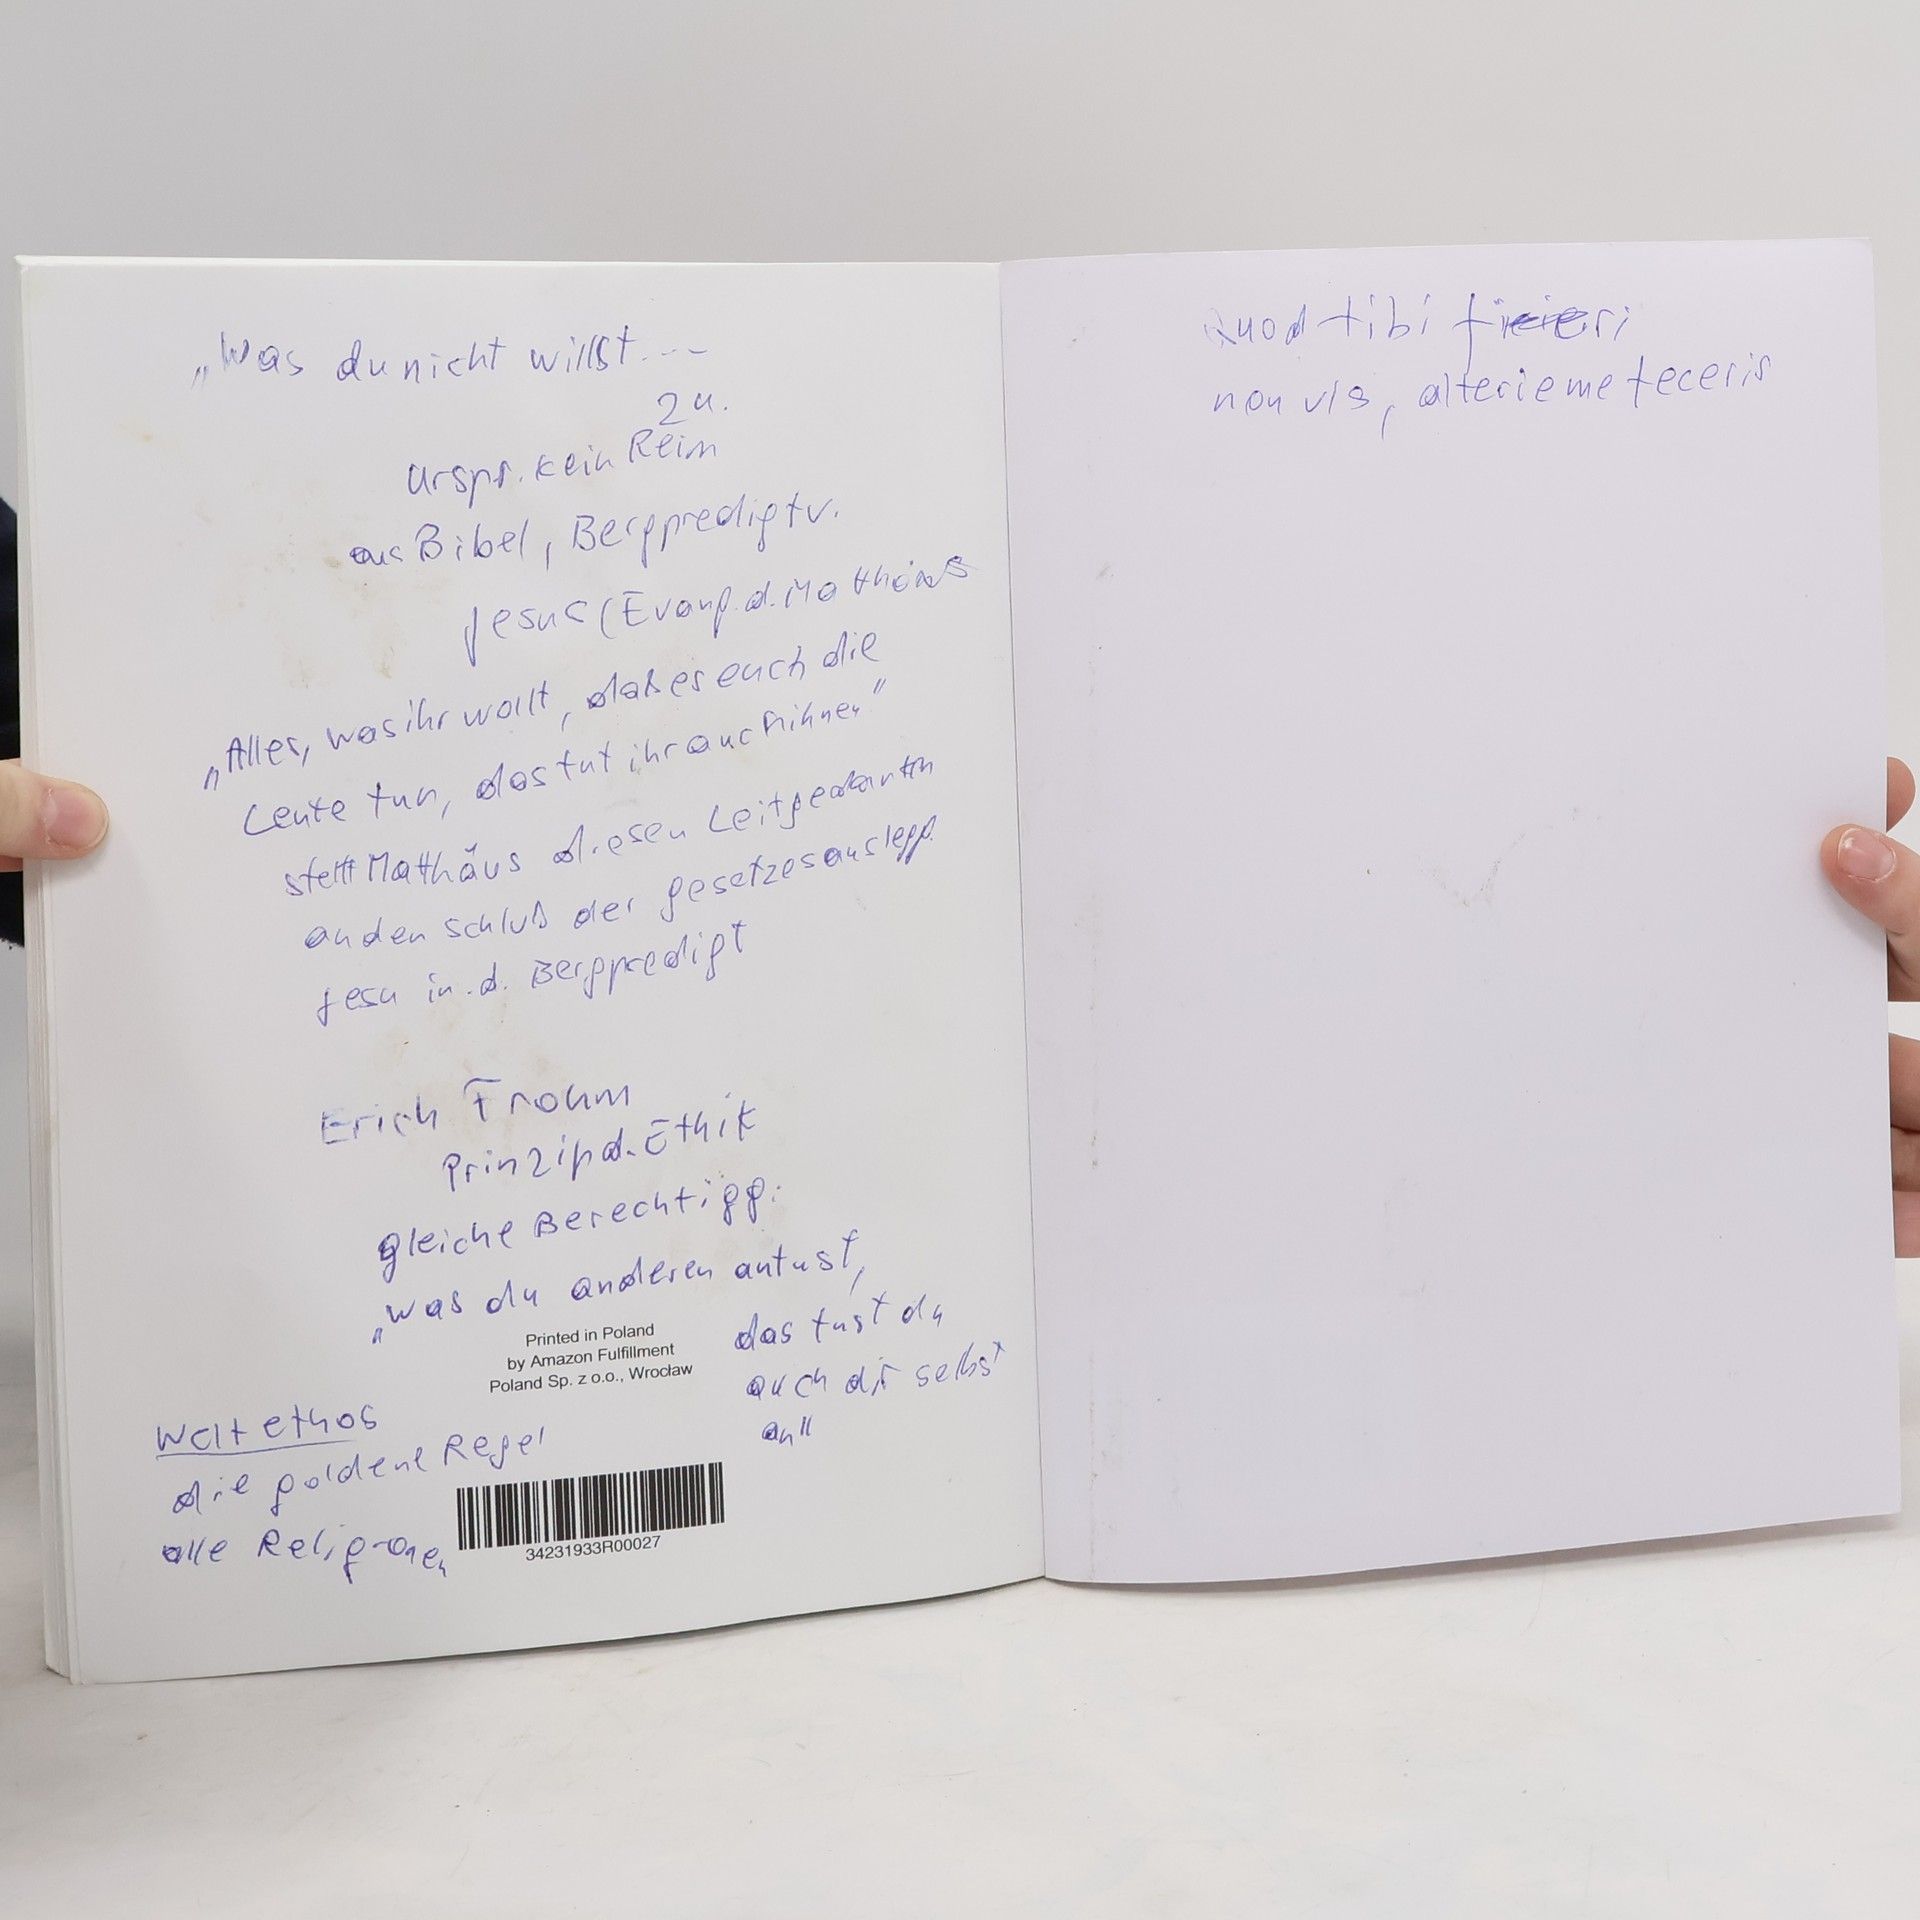 „Was du nicht willst...
Urspr. kein Reim
aus Bibel, Bergpredigt v.
Jesus (Evang. d. Matthäus
„Alles, was ihr wollt, daß es euch die
Leute tun, das tut ihr auch ihnen"
stellt Matthäus diesen Leitgedanken
an den Schluß der Gesetzesauslegg.
Jesu in d. Bergpredigt
Erich Fromm
Prinzip d. Ethik
gleiche Berechtigg.:
„was du anderen antust,
das tust du
auch dir selbst
an"
Printed in Poland
by Amazon Fulfillment
Poland Sp. z o.o., Wrocław
Weltethos
die goldene Regel
alle Religionen
34231933R00027
Quod tibi fieri
non vis, alteri e me feceris